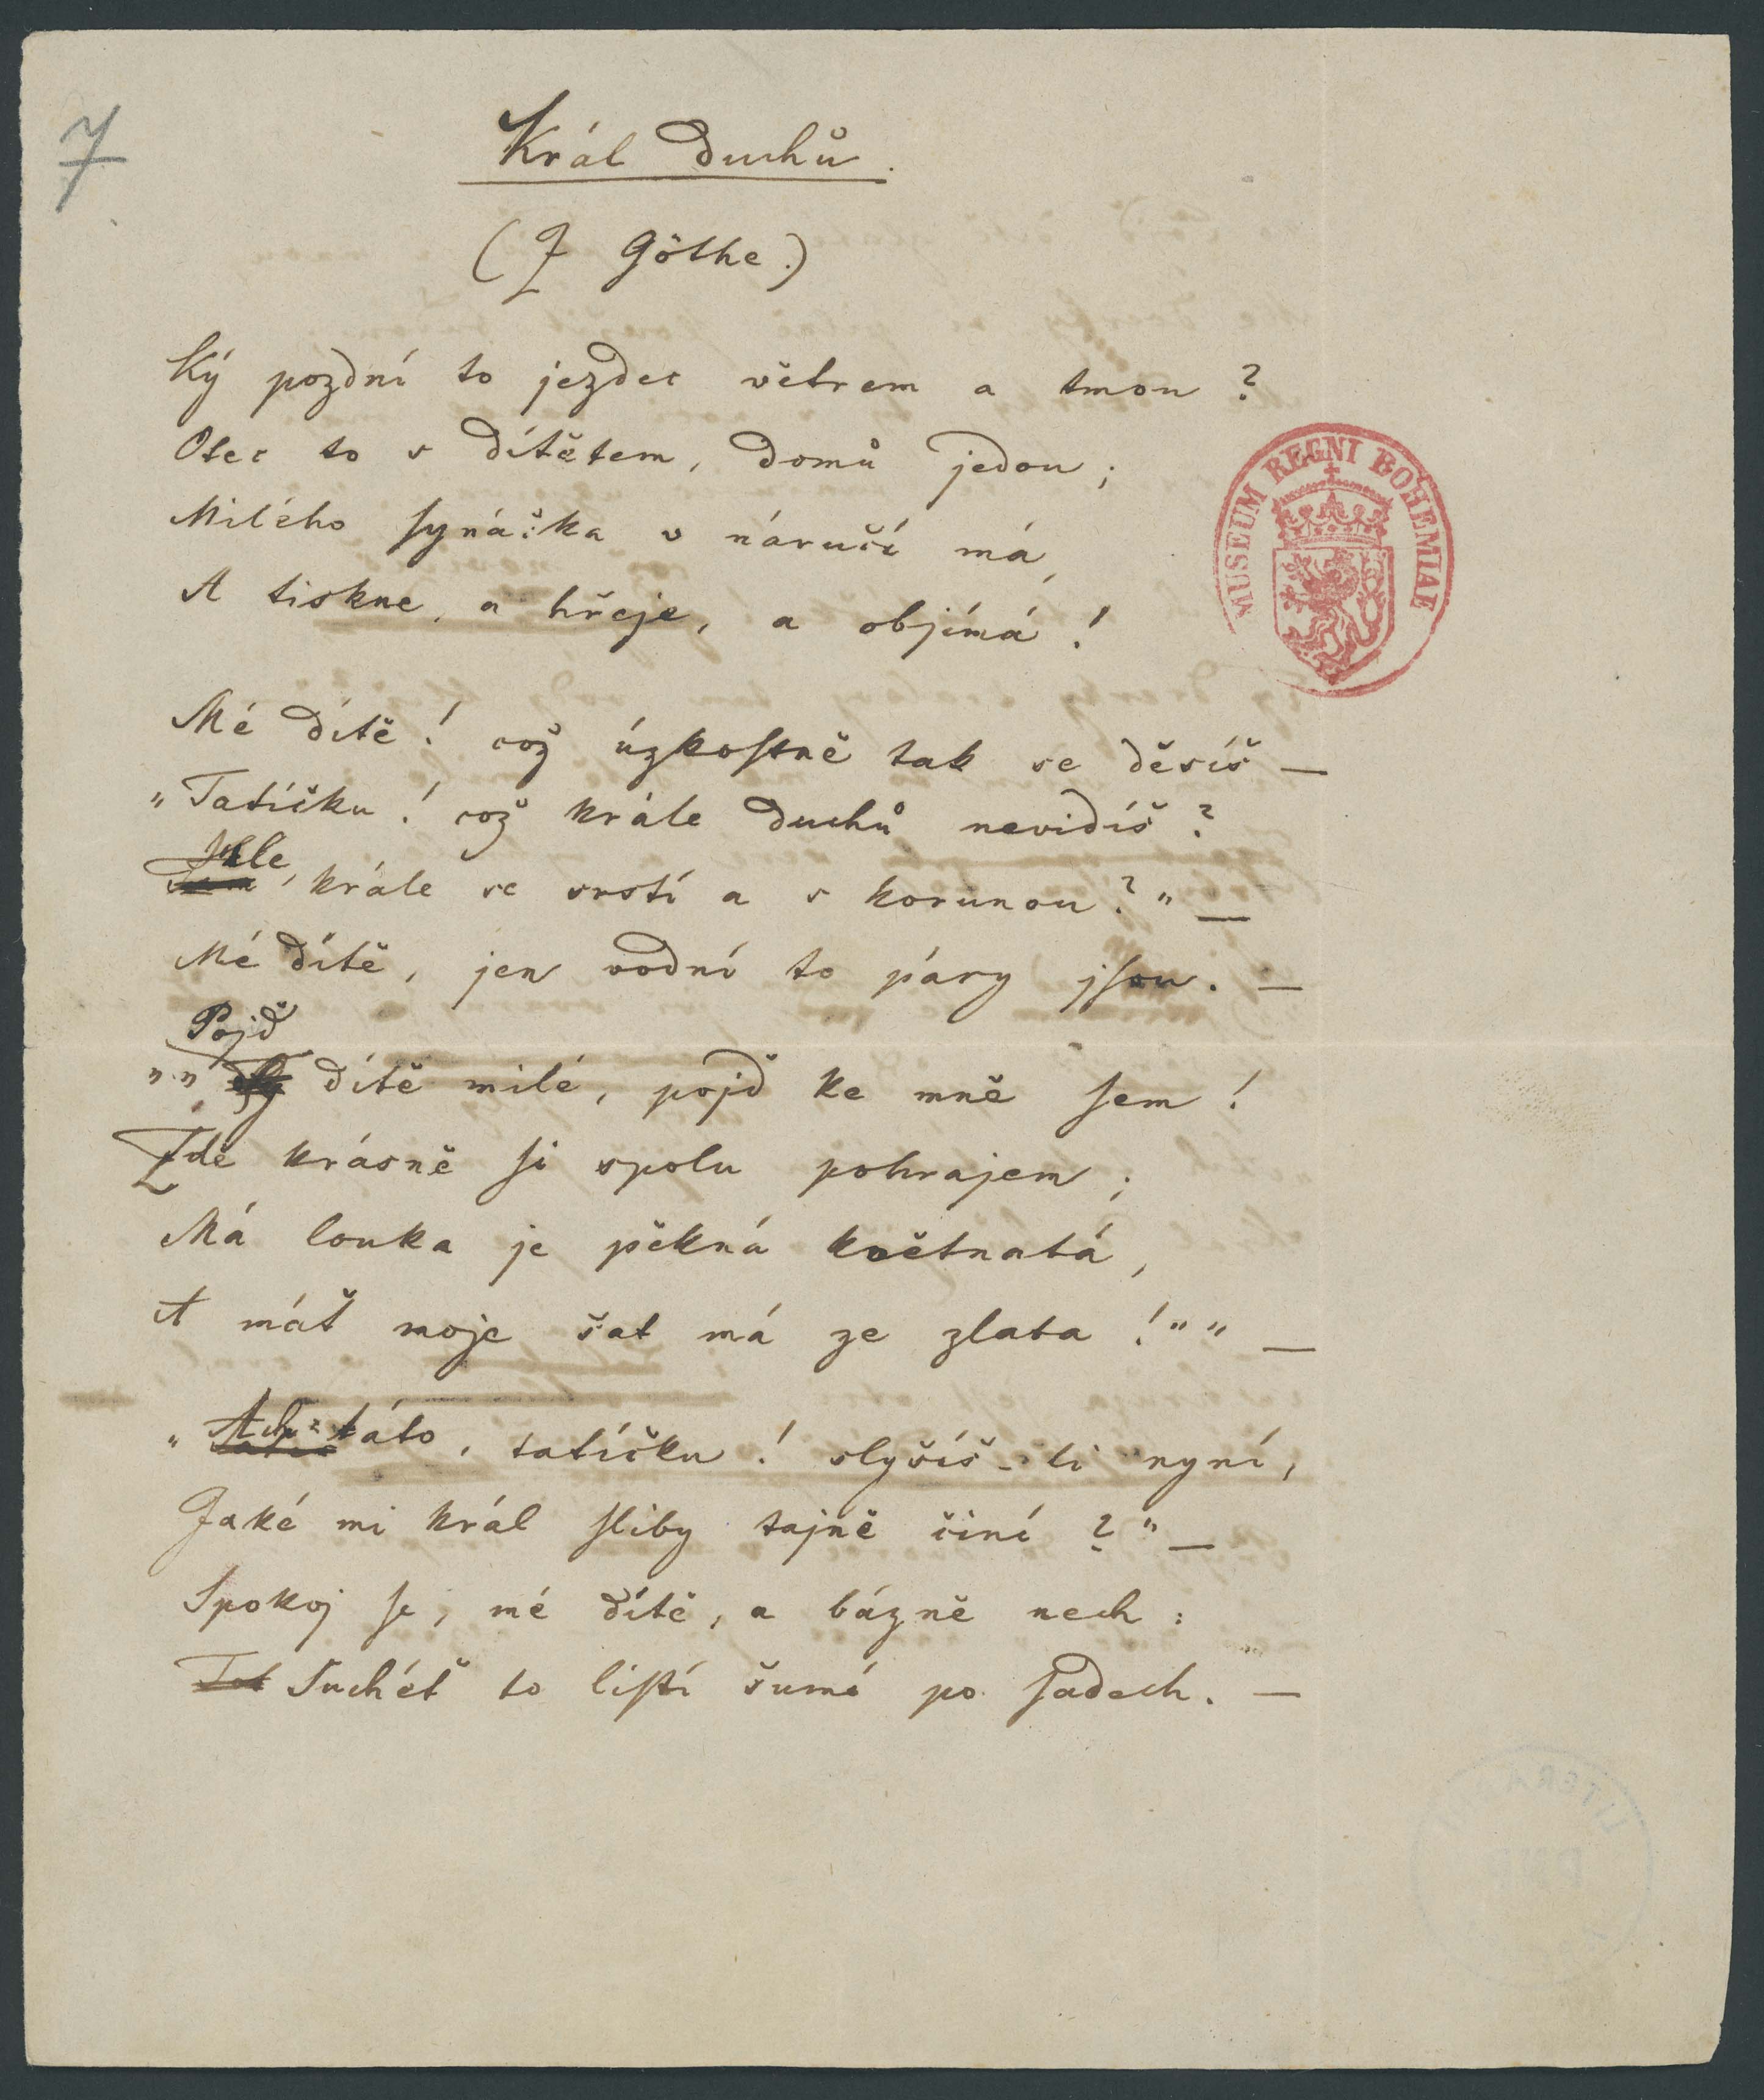 7
Král Duchů.
(Z Göthe.)
Ký pozdní to jezdec větrem a tmou?
Otec to s dítětem, domů jedou;
Milého synáčka v náručí má,
A tiskne, a hřeje, a objímá!
MUSEUM REGNI BOHEMIAE
Mé dítě! což úzkostně tak se děsíš —
"Tatíčku! což krále duchů nevidíš?
Hle, krále se srstí a s korunou?" —
Mé dítě, jen vodní to páry jsou. —
Pojď
"" dítě milé, pojď ke mně sem!
Zde krásně si spolu pohrajem;
Má louka je pěkná květnatá,
A máť moje šat má ze zlata!"" —
"Ach táto, tatíčku! slyšíš-li nyní,
Jaké mi král sliby tajně činí?" —
Spokoj se, mé dítě, a bázně nech:
Suchéť to listí šumí po sadech. —